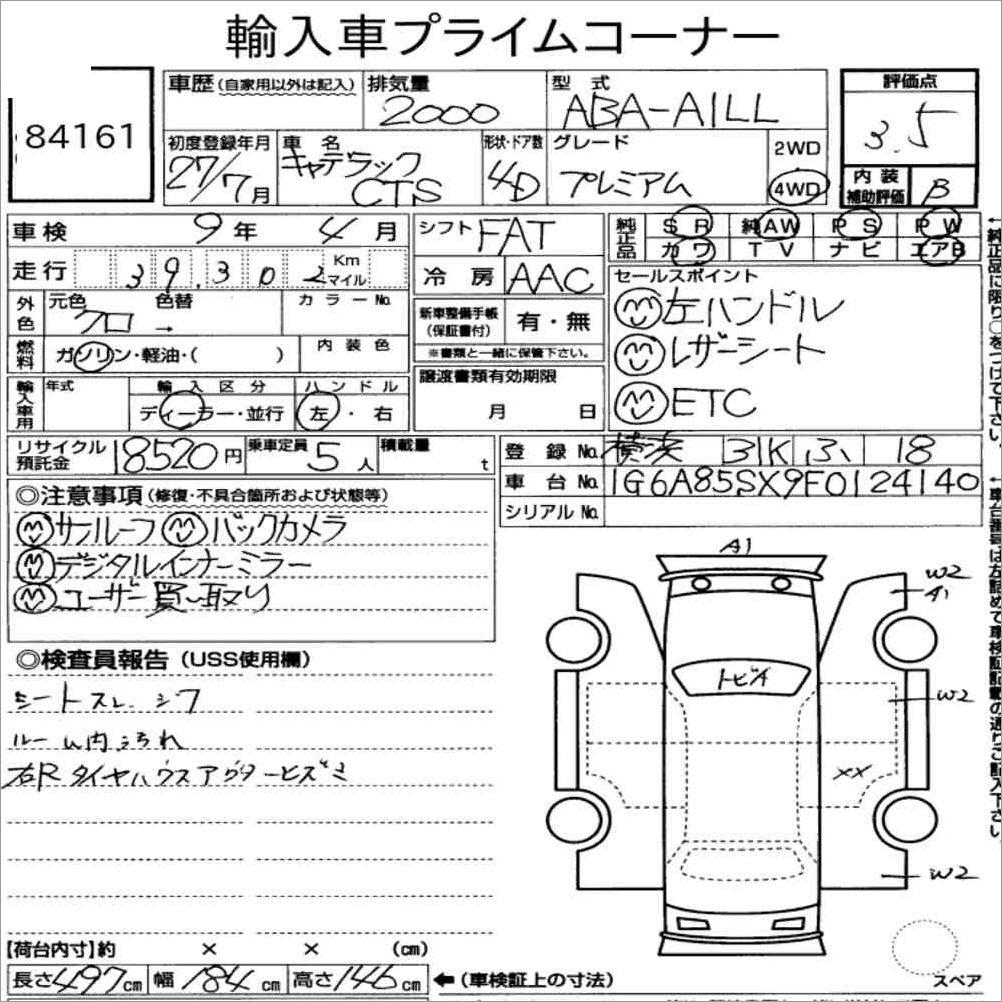 輸入車プライムコーナー
84161
車歴(自家用以外は記入)
排気量
2000
型式
ABA-A1LL
評価点
3.5
初度登録年月
27/7月
車名
キャデラック
CTS
形状・ドア数
4D
グレード
プレミアム
2WD
4WD
内装
補助評価
B
車検 9年 4月
走行 39,302 Km
マイル
シフト FAT
冷房 AAC
純正品 SR 純AW PS PW
カワ TV ナビ エアB
外色 元色 色替 カラーNo.
クロ →
燃料 ガソリン・軽油・( )
内装色
新車整備手帳
(保証書付)
有・無
※書類と一緒に保管下さい。
セールスポイント
左ハンドル
レザーシート
ETC
輸入車用 年式
輸入区分
ディーラー・並行
ハンドル
左・右
譲渡書類有効期限
月 日
リサイクル
預託金
18520円
乗車定員 5人
積載量 t
登録No. 横浜 31K ふ 18
車台No. 1G6A85SX9F0124140
シリアルNo.
◎注意事項(修復・不具合箇所および状態等)
サンルーフ バックカメラ
デジタルインナーミラー
ユーザー買い取り
◎検査員報告(USS使用欄)
シートスレ、シワ
ルーム内汚れ
右Rタイヤハウスアウターヒズミ
A1
W2
A1
トビA
W2
XX
W2
スペア
【荷台内寸】約 × × (cm)
長さ497cm 幅184cm 高さ146cm
←(車検証上の寸法)
←純正品に限り○をつけて下さい。
←車台番号は左詰めで車検証記載の通りご記入下さい。